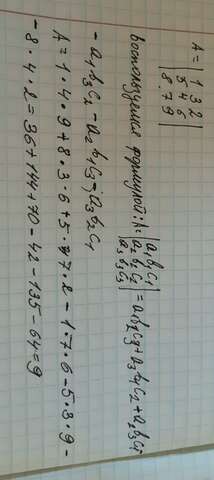 A = | 1 3 2 |
| 5 4 6 |
| 8 7 9 |
воспользуемся формулой: A = | a₁ b₁ c₁ |
| a₂ b₂ c₂ |
| a₃ b₃ c₃ | = a₁b₂c₃ + a₃b₁c₂ + a₂b₃c₁
- a₁b₃c₂ - a₂b₁c₃ - a₃b₂c₁
A = 1·4·9 + 8·3·6 + 5·7·2 - 1·7·6 - 5·3·9 -
- 8·4·2 = 36 + 144 + 70 - 42 - 135 - 64 = 9